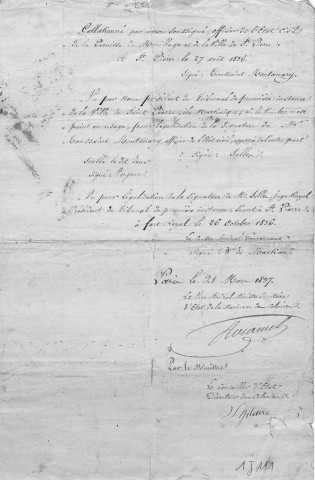 Collationné par nous soussigné, officier de l'Etat Civil
de la Paroisse du Mouillage et de la Ville de St Pierre
à St Pierre le 27 août 1836.
Signé: Toussaint Montenary
Vu par nous président du Tribunal de première instance
de la Ville de Saint Pierre, Ile Martinique, où le timbre n'est
point en usage, pour légalisation de la signature de Mr
Toussaint Montenary officier de l'Etat civil apposée de l'autre part
Scellé le dit jour
Signé: Selles
Signé:
Vu pour légalisation de la Signature de Mr Selles, juge Royal
Président du Tribunal de première instance, séant à St Pierre
à Fort Royal le 26 Octobre 1836
Le Contre Amiral Gouverneur
Signé: Bon de Mackau
Paris le 21 Mars 1837
Le Vice Amiral Ministre Secrétaire
d'Etat de la Marine et des Colonies
Rosamel
Par le Ministre
Le Conseiller d'Etat
Directeur des Colonies
St Hilaire
1 J 111